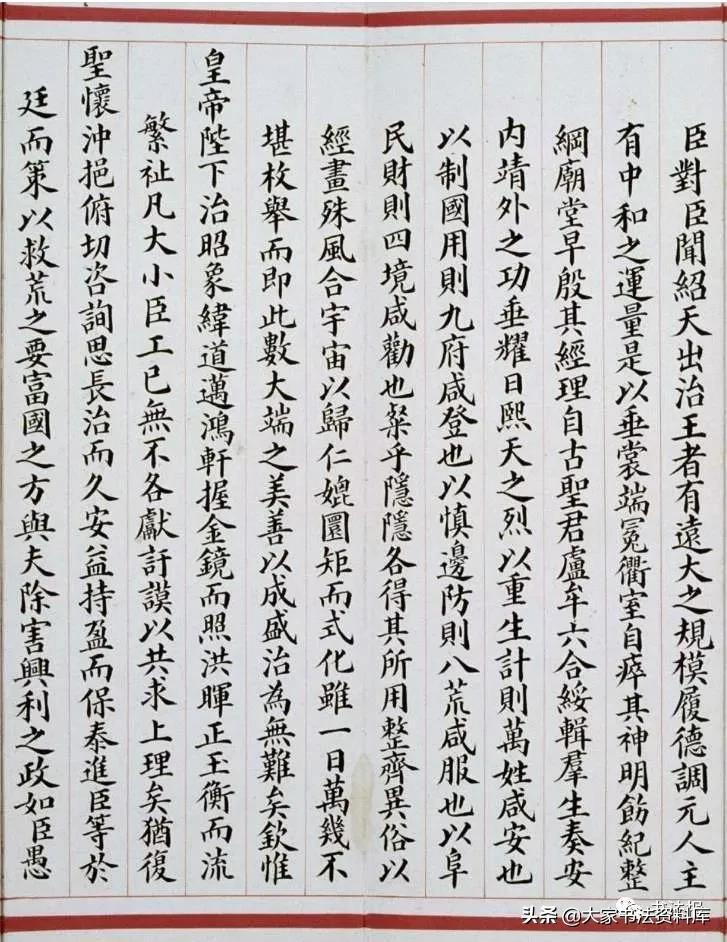 臣對臣聞紹天出治王者有遠大之規模履德調元人主
有中和之運量是以垂裳端冕衢室自瘁其神明飭紀整
綱廟堂早殷其經理自古聖君盧牟六合綏輯羣生奏安
内靖外之功垂耀日熙天之烈以重生計則萬姓咸安也
以制國用則九府咸登也以慎邊防則八荒咸服也以阜
民財則四境咸勸也粲乎隱隱各得其所用整齊異俗以
經畫殊風合宇宙以歸仁媲圜矩而式化雖一日萬幾不
堪枚舉而即此數大端之美善以成盛治為無難矣欽惟
皇帝陛下治昭象緯道邁鴻軒握金鏡而照洪暉正玉衡而流
繁祉凡大小臣工已無不各獻訏謨以共求上理矣猶復
聖懷沖挹俯切咨詢思長治而久安益持盈而保泰進臣等於
廷而策以救荒之要富國之方與夫除害興利之政如臣愚
书法报
头条 @大家书法资料库